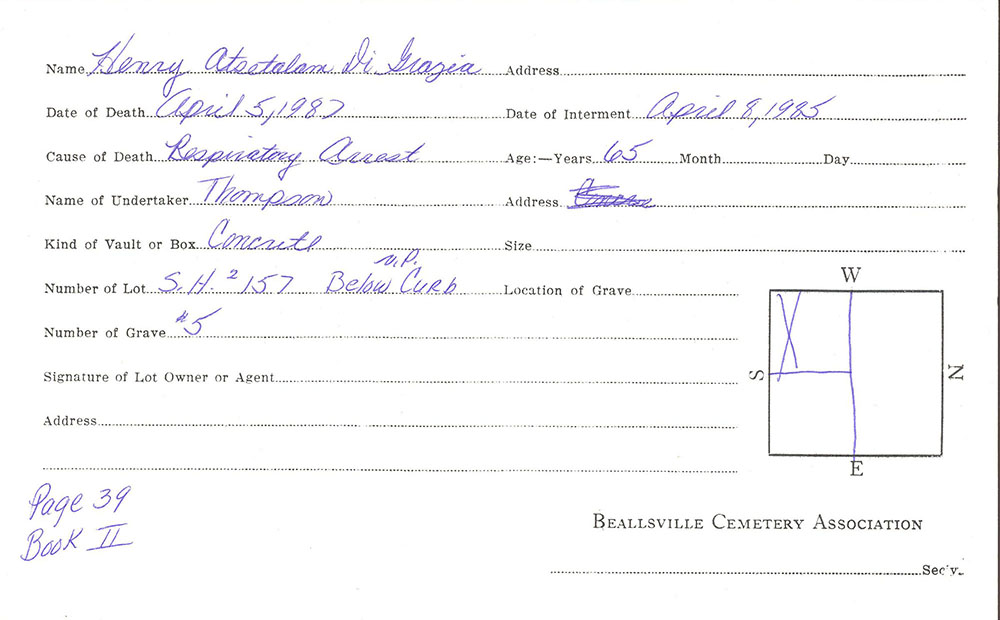 Name Henry Atsatalam Di Grazia Address
Date of Death April 5, 1987 Date of Interment April 8, 1985
Cause of Death Respiratory Arrest Age:—Years 65 Month Day
Name of Undertaker Thompson Address
Kind of Vault or Box Concrete Size
V.P.
Number of Lot S.H. 2 157 Below Curb Location of Grave
W
Number of Grave #5
Signature of Lot Owner or Agent
S N
Address
E
Page 39
Book II
BEALLSVILLE CEMETERY ASSOCIATION
Sec'y.